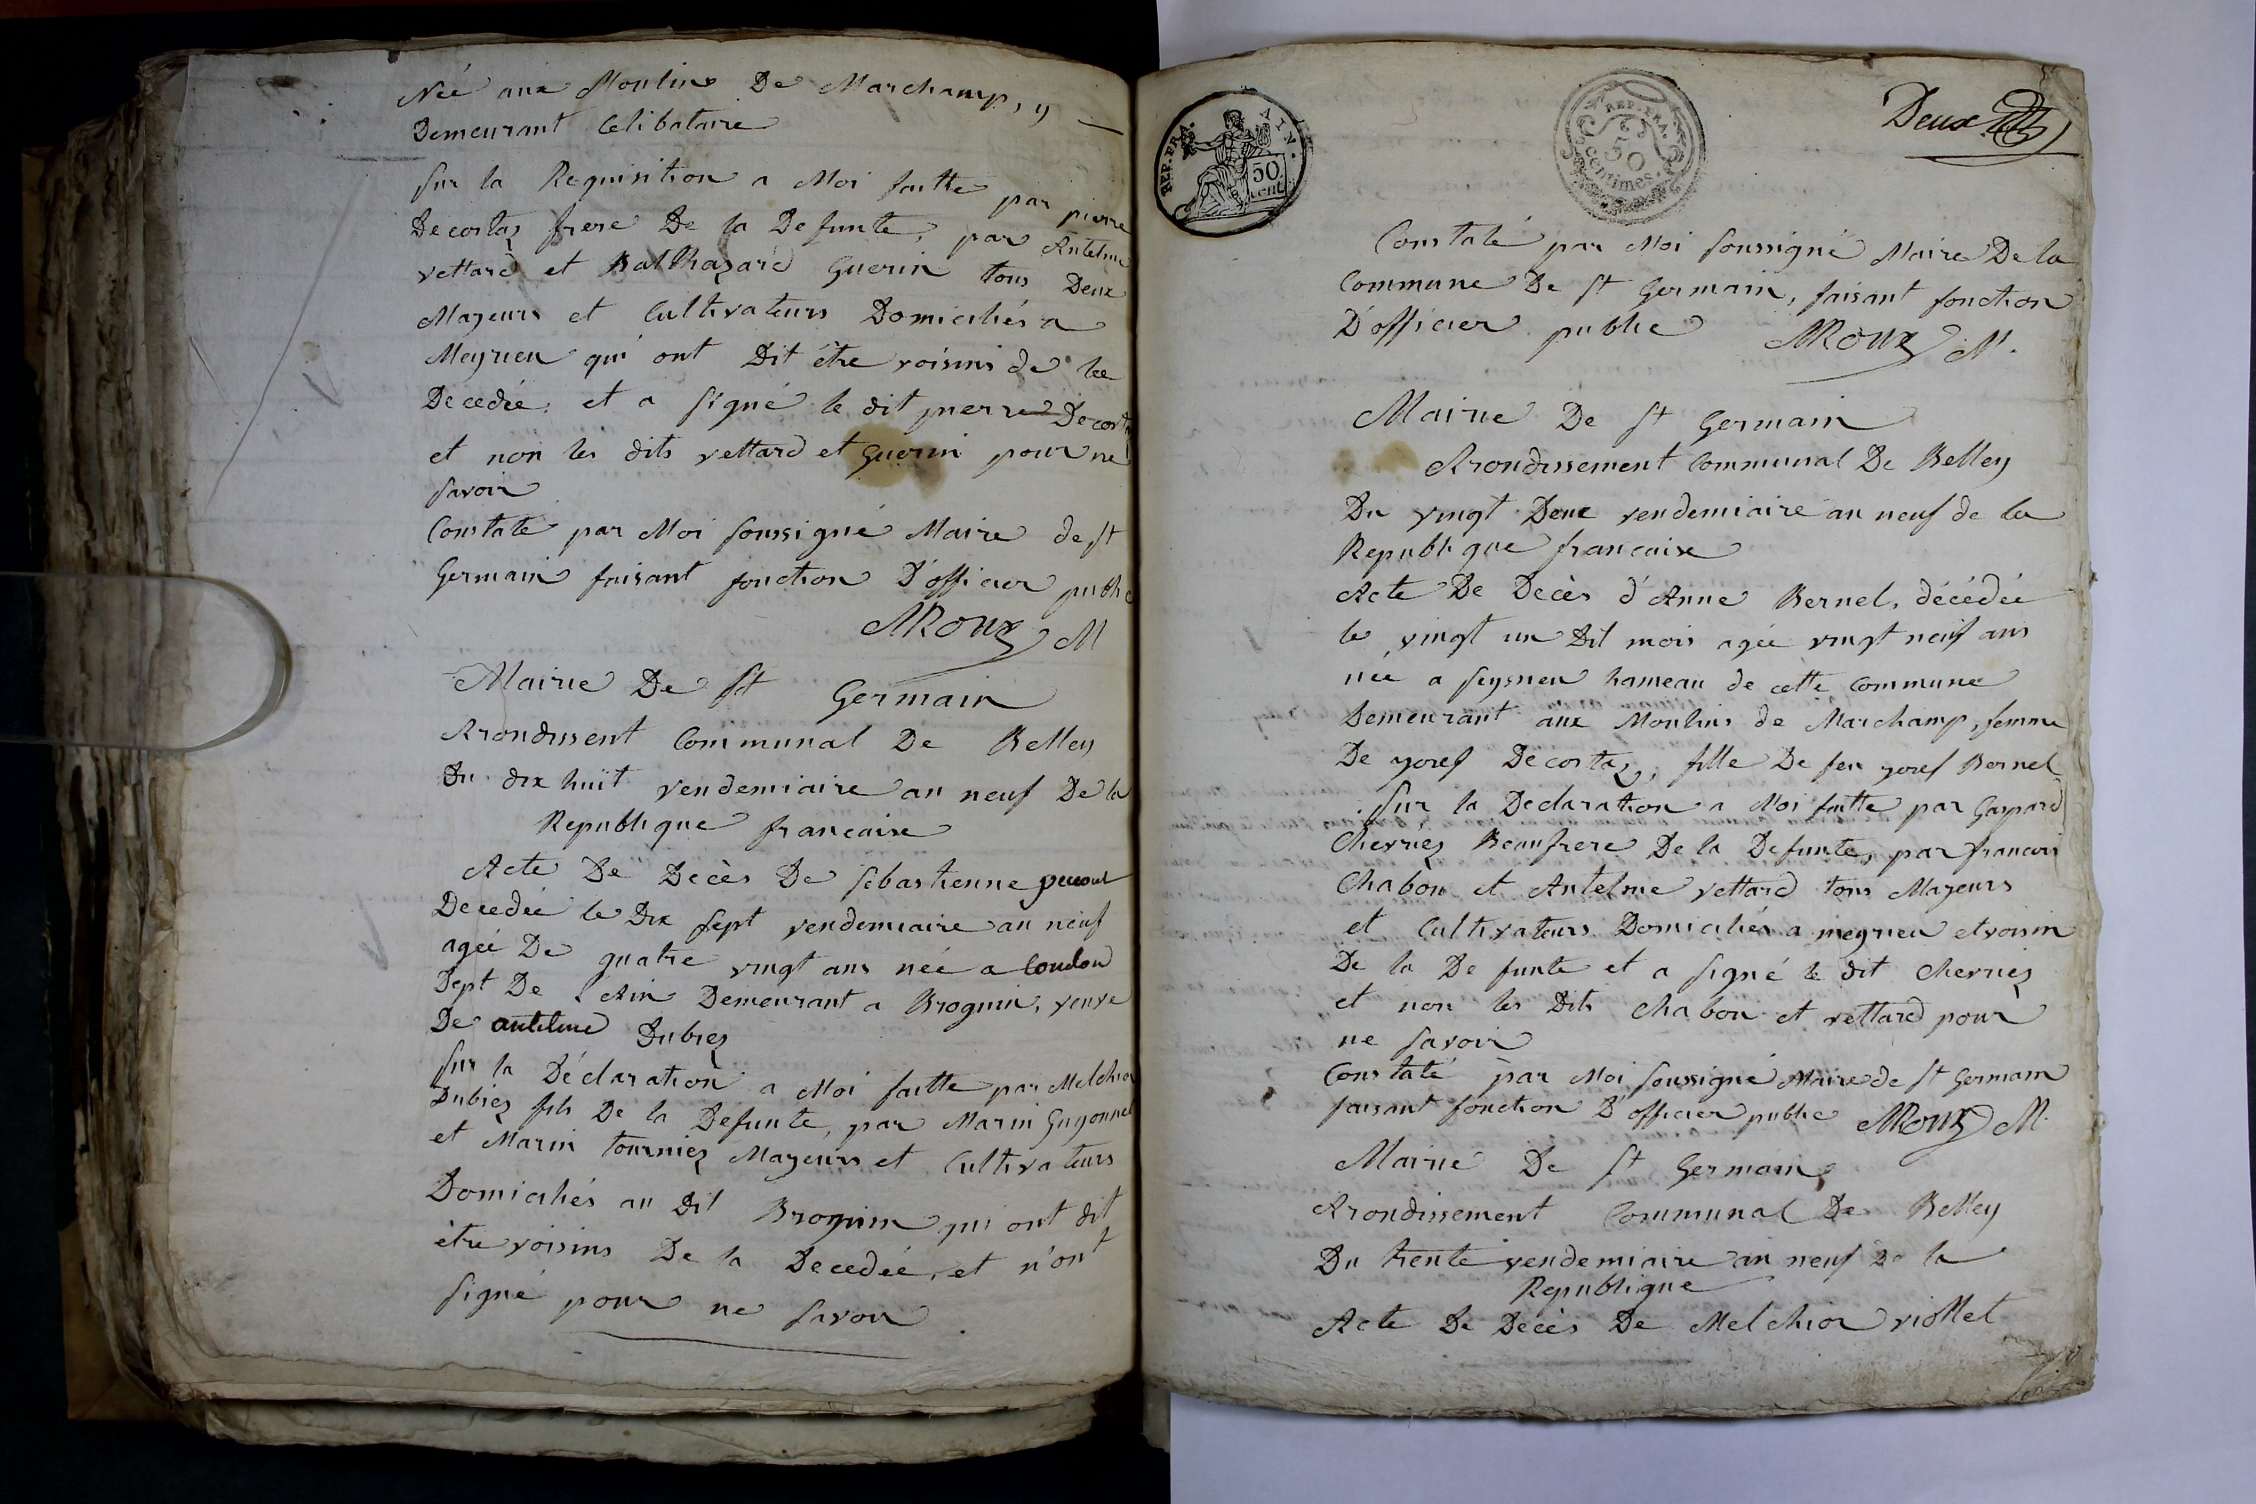 Née aux Moulins De Marchamp, y
Demeurant Celibataire
Sur la Requisition a Moi faitte par pierre
Decortaz frere De la Defunte, par Antelme
vettard et Balthazard Guerin tous Deux
Majeurs et Cultivateurs Domiciliés a
Meyrieu qui ont Dit être voisins de la
Decedée, et a signé le dit pierre Decorta
et non les dits vettard et Guerin pour ne
savoir
Constate par Moi soussigné Maire de St
Germain faisant fonction D'officier public
MRoux M
Mairie De St Germain
Arondissent Communal De Belley
Du dix huit vendemiaire an neuf De la
Republique francaise
Acte De Decès De Sebastienne
Decedée le Dix sept vendemiaire an neuf
ageé De quatre vingt ans née a Coudon
Dept De L'Ain Demeurant a Brognin, veuve
De antelme Dubiez
Sur la Déclaration a Moi faitte par Melchior
Dubiez fils De la Defunte, par Marin Guyonnet
et Marin tourniez Mageurs et Cultivateurs
Domiciliés au Dit Brognin qui ont dit
être voisins De la Decedée, et n'ont
signé pour ne savoir
REP. FRA. AIN.
50 cent.
REP. FRA.
50
centimes.
Deux
Constaté par Moi soussigné Maire De la
Commune De St Germain, faisant fonction
D'officier public MRoux M.
Mairie De St Germain
Arondissement Communal De Belley
Du vingt Deux vendemiaire an neuf de la
Republique francaise
Acte De Decès d'Anne Bernel, décédée
le vingt un Dit mois agée vingt neuf ans
née a Seysneu hameau de cette Commune
Demeurant aux Moulins de Marchamp, femme
De yosef Decortaz, fille De feu yosef Bernel
Sur la Declaration a Moi faitte par Gaspard
Cherriez Beaufrere De la Defunte, par francois
Chabon et Antelme vettard tous Mageurs
et Cultivateurs Domiciliés a meyrieu et voisin
De la Defunte et a signé le dit Cherriez
et non les Dits Chabon et vettard pour
ne savoir
Constaté par Moi soussigné Maire de St Germain
faisant fonction D'officier public MRoux M.
Mairie De St Germain
Arondissement Communal De Belley
Du trente vendemiaire an neuf De la
Republique
Acte De Décès De Melchior viollet